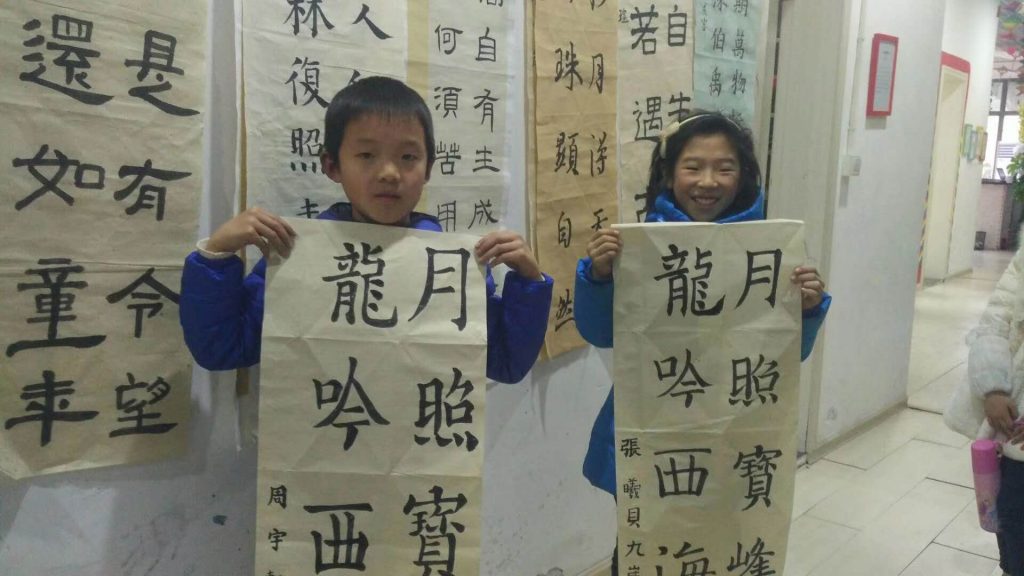 是有令望
還如童年
人
林復照
自有生成
何須苦用
月
珠顯自然
自
若遇
萬物
伯禹
月照寶
龍吟西
周宇
月照寶峰
龍吟西海
張曦貝九歲